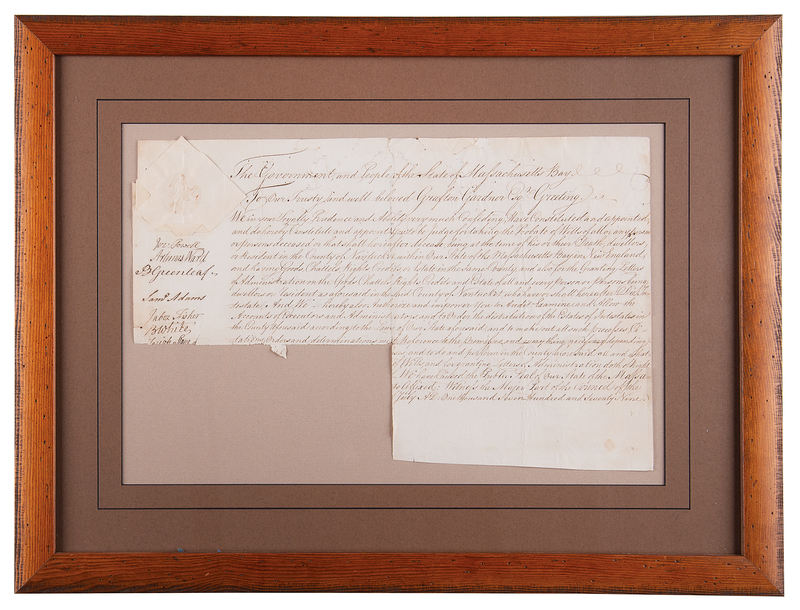 The Government and People of the State of Massachusetts Bay
To Our Trusty and well beloved Grafton Gardner Esqr. Greeting
We in your Loyalty Prudence and Ability very much Confiding Have Constituted and appointed
and do hereby Constitute and appoint you to be Judge of taking the Probate of Wills of all or any
persons deceased or that shall hereafter decease being at the time of his or their Death dwellers
or resident in the County of within Our State of the Massachusetts Bay in New England
and having Goods Chattels Rights Credits or Estate in the same County and also for the Granting Letters
of Administration on the Goods Chattels Rights Credits and Estate of all and every person or persons being
dwellers or resident as aforesaid in the said County of who have or shall hereafter
testate. And We do hereby also Authorize and impower You to Audit Examine and allow the
Accounts of Executors and Administrators and to Order the distribution of the Estates of Intestates in
the County aforesaid according to the Law of Our State aforesaid and to make out all such process
Orders and determinations with reference to the Premises and as any thing depending
and to do and perform in the County aforesaid all and what
of Wills and for granting Letters of Administration doth
We have Caused the Public Seal of Our State of the
Witness the Major Part of the Council of the
July AD. One thousand Seven Hundred and Seventy Nine
Jer. Powell
Artemas Ward
B Greenleaf
Saml Adams
Jabez Fisher
B White